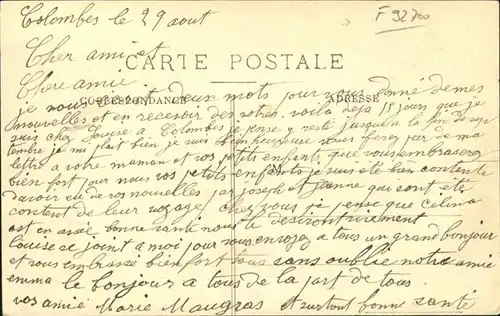 Colombes le 29 aout
F 92700
Cher ami et
CARTE POSTALE
Chere amie
je vous écrit deux mots pour vous donné de mes
CORRESPONDANCE
ADRESSE
nouvelles et en recevoir des votres. voila déja 15 jours que je
suis chez Louise a Colombes je pense y resté jusqua la fin de sep
tembre je me plait bien je suis bien heureuse vous ferez par de ma
lettre a votre maman et vos petits enfants, que vous embraserez
bien fort pour nous vos petits enfants je suis été bien contente
davoir eu de vos nouvelles par joseph et jeanne qui sont été
content de leur voyage chez vous je pense que Celina
est en assé bonne santé nous le desiront vivement
Louise se joint a moi pour vous envoyez a tous un grand bonjour
et vous embrassé bien fort tous sans oublié notre amie
emma le bonjour a tous de la part de tous
vos amie Marie Maugras et surtout bonne santé